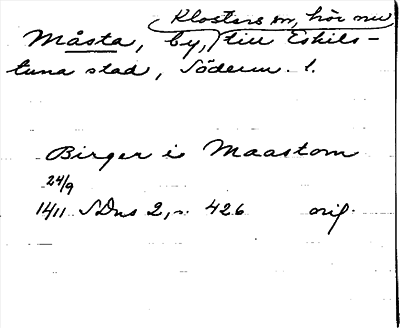 Klosters sn, hör nu
Måsta, by, till Eskils-
tuna stad, Söderm. l.
Birger i Maastom
24/9
1411 SDns 2, s. 426 orig.